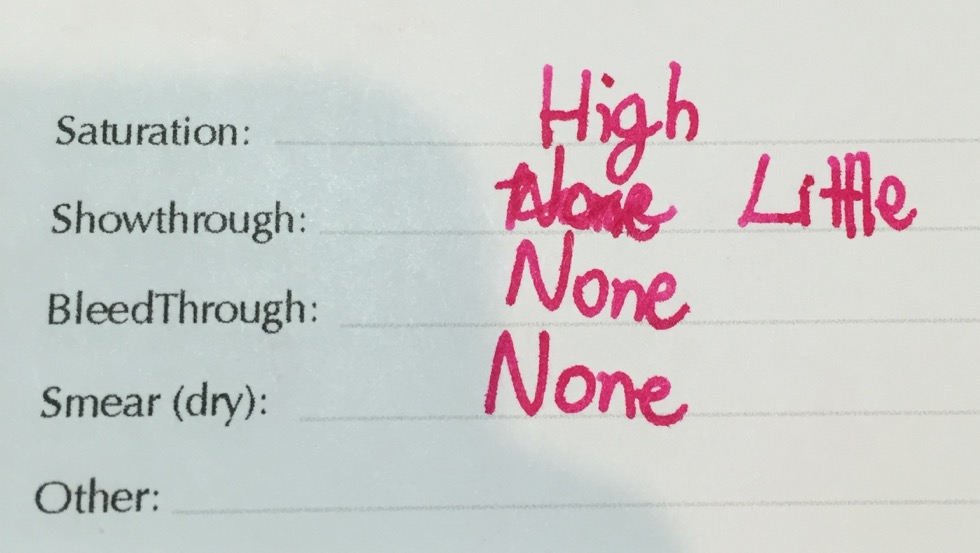 Saturation: High
Showthrough: None Little
BleedThrough: None
Smear (dry): None
Other: